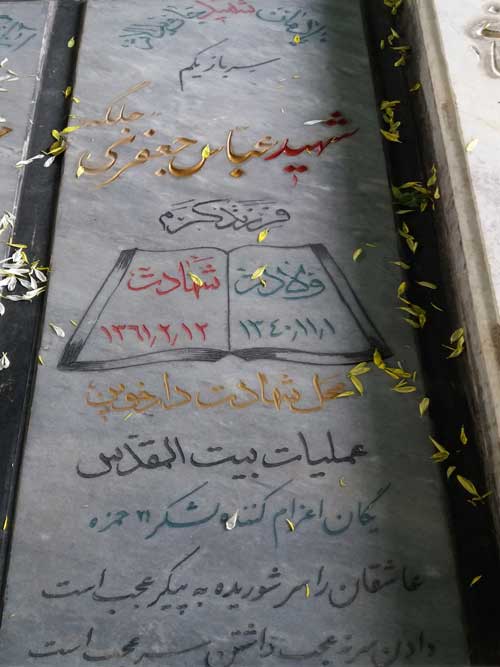 شهید
سرباز یکم
شهید عباس جعفری
فرزند کرم
ولادت شهادت
۱۳۴۰,۱۱,۱ ۱۳۶۱,۲,۱۲
محل شهادت دارخوین
عملیات بیت المقدس
یگان اعزام کننده لشکر ۲۱ حمزه
عاشقان را سر شوریده به پیکر عجب است
دادن سر نه عجب داشتن سر عجب است